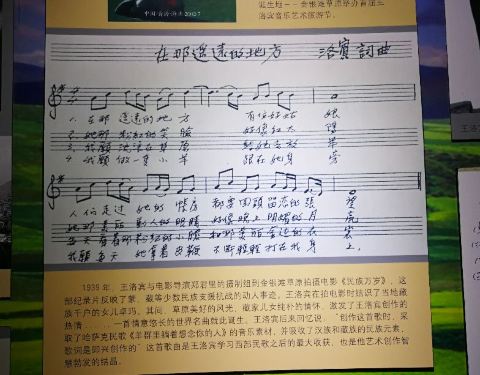 中国·青海·海北2002·7
诞生地——金银滩草原举办首届王
洛宾音乐艺术旅游节。
在那遥远的地方 洛宾詞曲
1. 在那遥远的地方 有位好姑娘
2. 她那粉红的笑臉 好像红太陽
3. 我願 跟她去放羊
4. 我願做一隻小羊 跟在她身旁
人们走过她的帳房 都要回頭留恋的張望
她那美丽動人的眼睛 好像晚上明媚的月亮
每天看着那粉红的小臉 和那美丽金边的衣裳
我願每天她拿着皮鞭 不断輕輕打在我身上
1939年，王洛宾与电影导演郑君里的摄制组到金银滩草原拍摄电影《民族万岁》，这
部纪录片反映了蒙、藏等少数民族支援抗战的动人事迹。王洛宾在拍电影时结识了当地藏
族千户的女儿卓玛。其间，草原美好的风光、藏家儿女纯朴的情怀，激发了王洛宾创作的
热情……一首情意悠长的世界名曲就此诞生。王洛宾后来回忆说，“创作这首歌时，采
取了哈萨克民歌《羊群里躺着想念你的人》的音乐素材，并吸收了汉族和藏族的民族元素，
歌词是即兴创作的”这首歌曲是王洛宾学习西部民歌之后的最大收获，也是他艺术创作智
慧勃发的结晶。
王洛